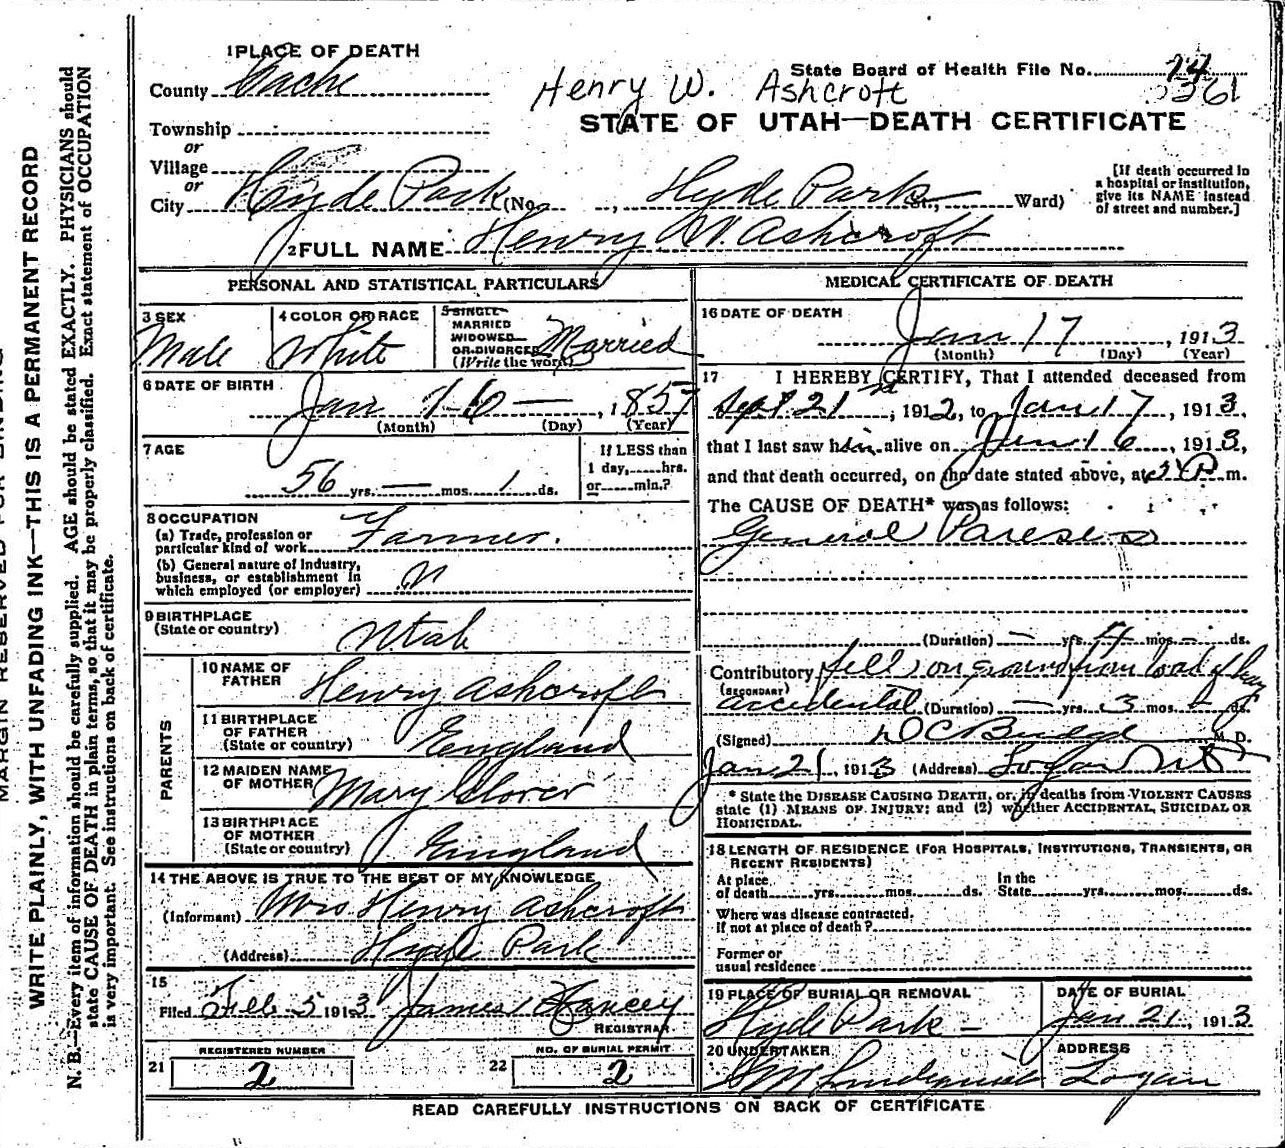 1 PLACE OF DEATH
County Cache
State Board of Health File No. 74
361
Henry W. Ashcroft
STATE OF UTAH—DEATH CERTIFICATE
Township
or
Village
or
City Hyde Park (No. , Hyde Park St., Ward)
[If death occurred in a hospital or institution, give its NAME instead of street and number.]
2 FULL NAME Henry W. Ashcroft
PERSONAL AND STATISTICAL PARTICULARS
3 SEX
Male
4 COLOR OR RACE
White
5 SINGLE
MARRIED
WIDOWED
OR DIVORCED
(Write the word)
Married
6 DATE OF BIRTH
Jan 16 — , 1857
(Month) (Day) (Year)
7 AGE
56 yrs. — mos. 1 ds.
If LESS than
1 day, hrs.
or min.?
8 OCCUPATION
(a) Trade, profession or
particular kind of work Farmer.
(b) General nature of industry,
business, or establishment in
which employed (or employer)
9 BIRTHPLACE
(State or country)
Utah
PARENTS
10 NAME OF
FATHER
Henry Ashcroft
11 BIRTHPLACE
OF FATHER
(State or country)
England
12 MAIDEN NAME
OF MOTHER
Mary Glover
13 BIRTHPLACE
OF MOTHER
(State or country)
England
14 THE ABOVE IS TRUE TO THE BEST OF MY KNOWLEDGE
(Informant) Mrs Henry Ashcroft
(Address) Hyde Park
15
Filed Feb 5 1913 James Hancey
REGISTRAR
REGISTERED NUMBER
21 2
NO. OF BURIAL PERMIT
22 2
MEDICAL CERTIFICATE OF DEATH
16 DATE OF DEATH
Jan 17 , 1913
(Month) (Day) (Year)
17 I HEREBY CERTIFY, That I attended deceased from
Sept. 21 , 1912, to Jan 17 , 1913,
that I last saw him alive on Jan 16 , 1913,
and that death occurred, on the date stated above, at P m.
The CAUSE OF DEATH* was as follows:
General Pareses
(Duration) — yrs. 4 mos. — ds.
Contributory fell on ground from load of hay
(SECONDARY)
accidental (Duration) — yrs. 3 mos. — ds.
(Signed) D C Budge M.D.
Jan 21, 1913 (Address) Logan Ut
* State the DISEASE CAUSING DEATH, or, in deaths from VIOLENT CAUSES
state (1) MEANS OF INJURY; and (2) whether ACCIDENTAL, SUICIDAL OR
HOMICIDAL.
18 LENGTH OF RESIDENCE (FOR HOSPITALS, INSTITUTIONS, TRANSIENTS, OR
RECENT RESIDENTS)
At place
of death yrs. mos. ds.
In the
State yrs. mos. ds.
Where was disease contracted,
if not at place of death?
Former or
usual residence
19 PLACE OF BURIAL OR REMOVAL
Hyde Park —
DATE OF BURIAL
Jan 21, 1913
20 UNDERTAKER
ADDRESS
Logan
READ CAREFULLY INSTRUCTIONS ON BACK OF CERTIFICATE
WRITE PLAINLY, WITH UNFADING INK—THIS IS A PERMANENT RECORD
N. B.—Every item of information should be carefully supplied. AGE should be stated EXACTLY. PHYSICIANS should
state CAUSE OF DEATH in plain terms, so that it may be properly classified. Exact statement of OCCUPATION
is very important. See instructions on back of certificate.